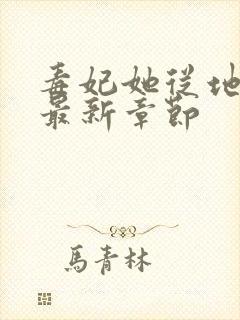 毒妃她從地
最新章節
馬青林